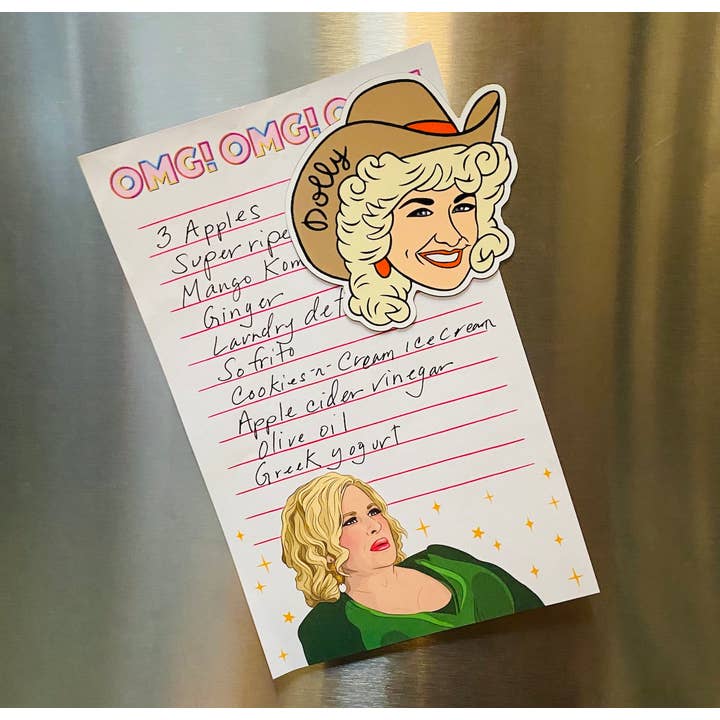 OMG! OMG! O
Dolly
3 Apples
Super ripe
Mango Kom
Ginger
Laundry det
Sofrito
Cookies-n-Cream ice cream
Apple cider vinegar
Olive oil
Greek yogurt